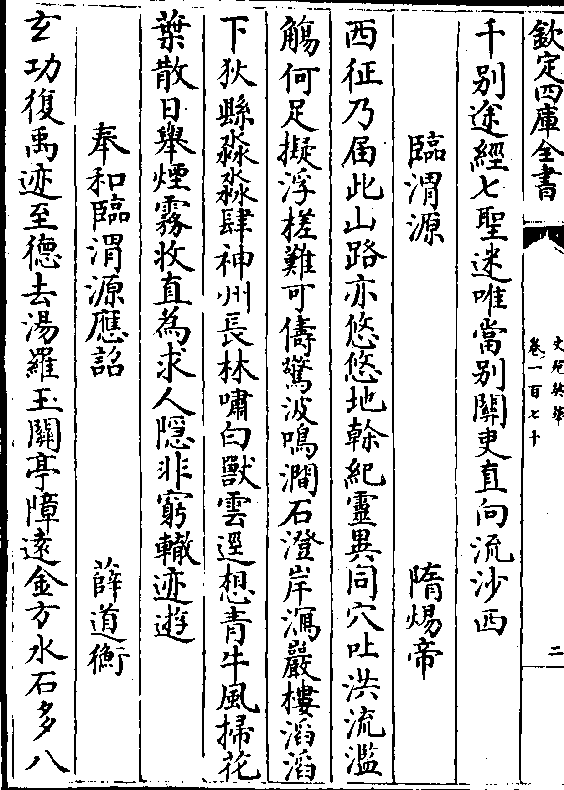 欽定四庫全書
文苑英華
卷一百七十
二
千别途經七聖迷唯當别關吏直向流沙西
臨渭源 隋煬帝
西征乃届此山路亦悠悠地幹紀靈異同穴吐洪流濫
觴何足擬浮槎難可儔驚波鳴澗石澄岸瀉巖樓滔滔
下狄縣淼淼肆神州長林嘯白獸雲逕想青牛風掃花
葉散日舉煙霧收直為求人隱非窮轍迹遊
奉和臨渭源應詔 薛道衡
玄功復禹迹至德去湯羅玉關亭障逺金方水石多八